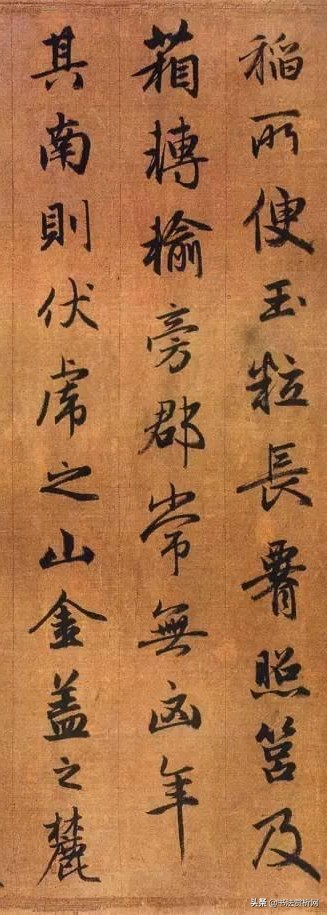 稻所便玉粒長照筥及
箱轉輸旁郡常無凶年
其南則伏虎之山金盖之麓
头条 @书法赏析网